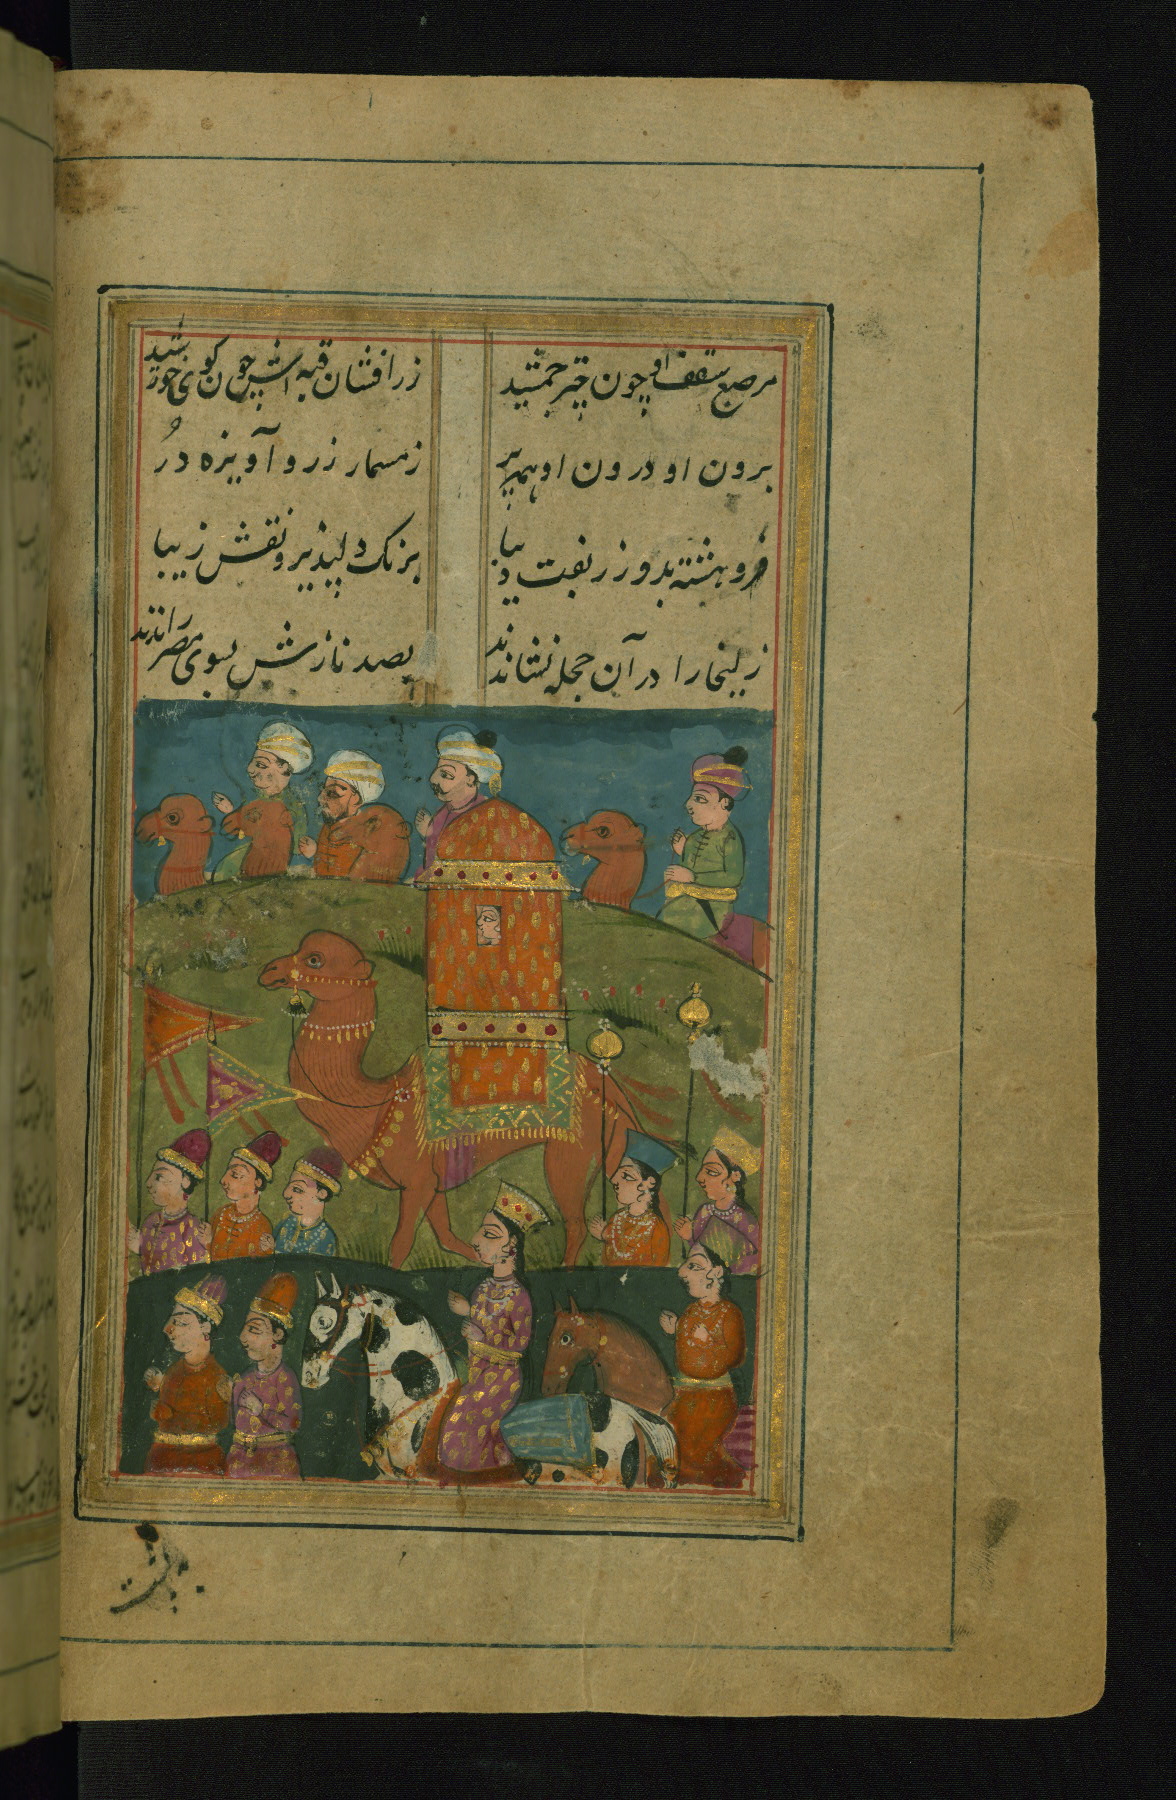 مرصع سقف او چون چتر جمشید زرافشان قبه اش چون گوی خورشید
برون او درون او همه پر ز مسمار زر و آویزه در
فروهشته بدو زربفت دیبا برنک دلپذیر و نقش زیبا
زلیخا را در آن حجله نشاندند بصد نازش بسوی مصر راندند